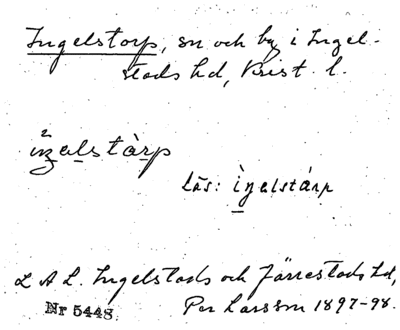 Ingelstorp, sn och by i Ingel-
stads hd, Krist. l.
iŋəlstàrp
Läs: ìŋəlstárp
L A L. Ingelstads och Järrestads hd,
Nr 5448. Per Larsson 1897-98.